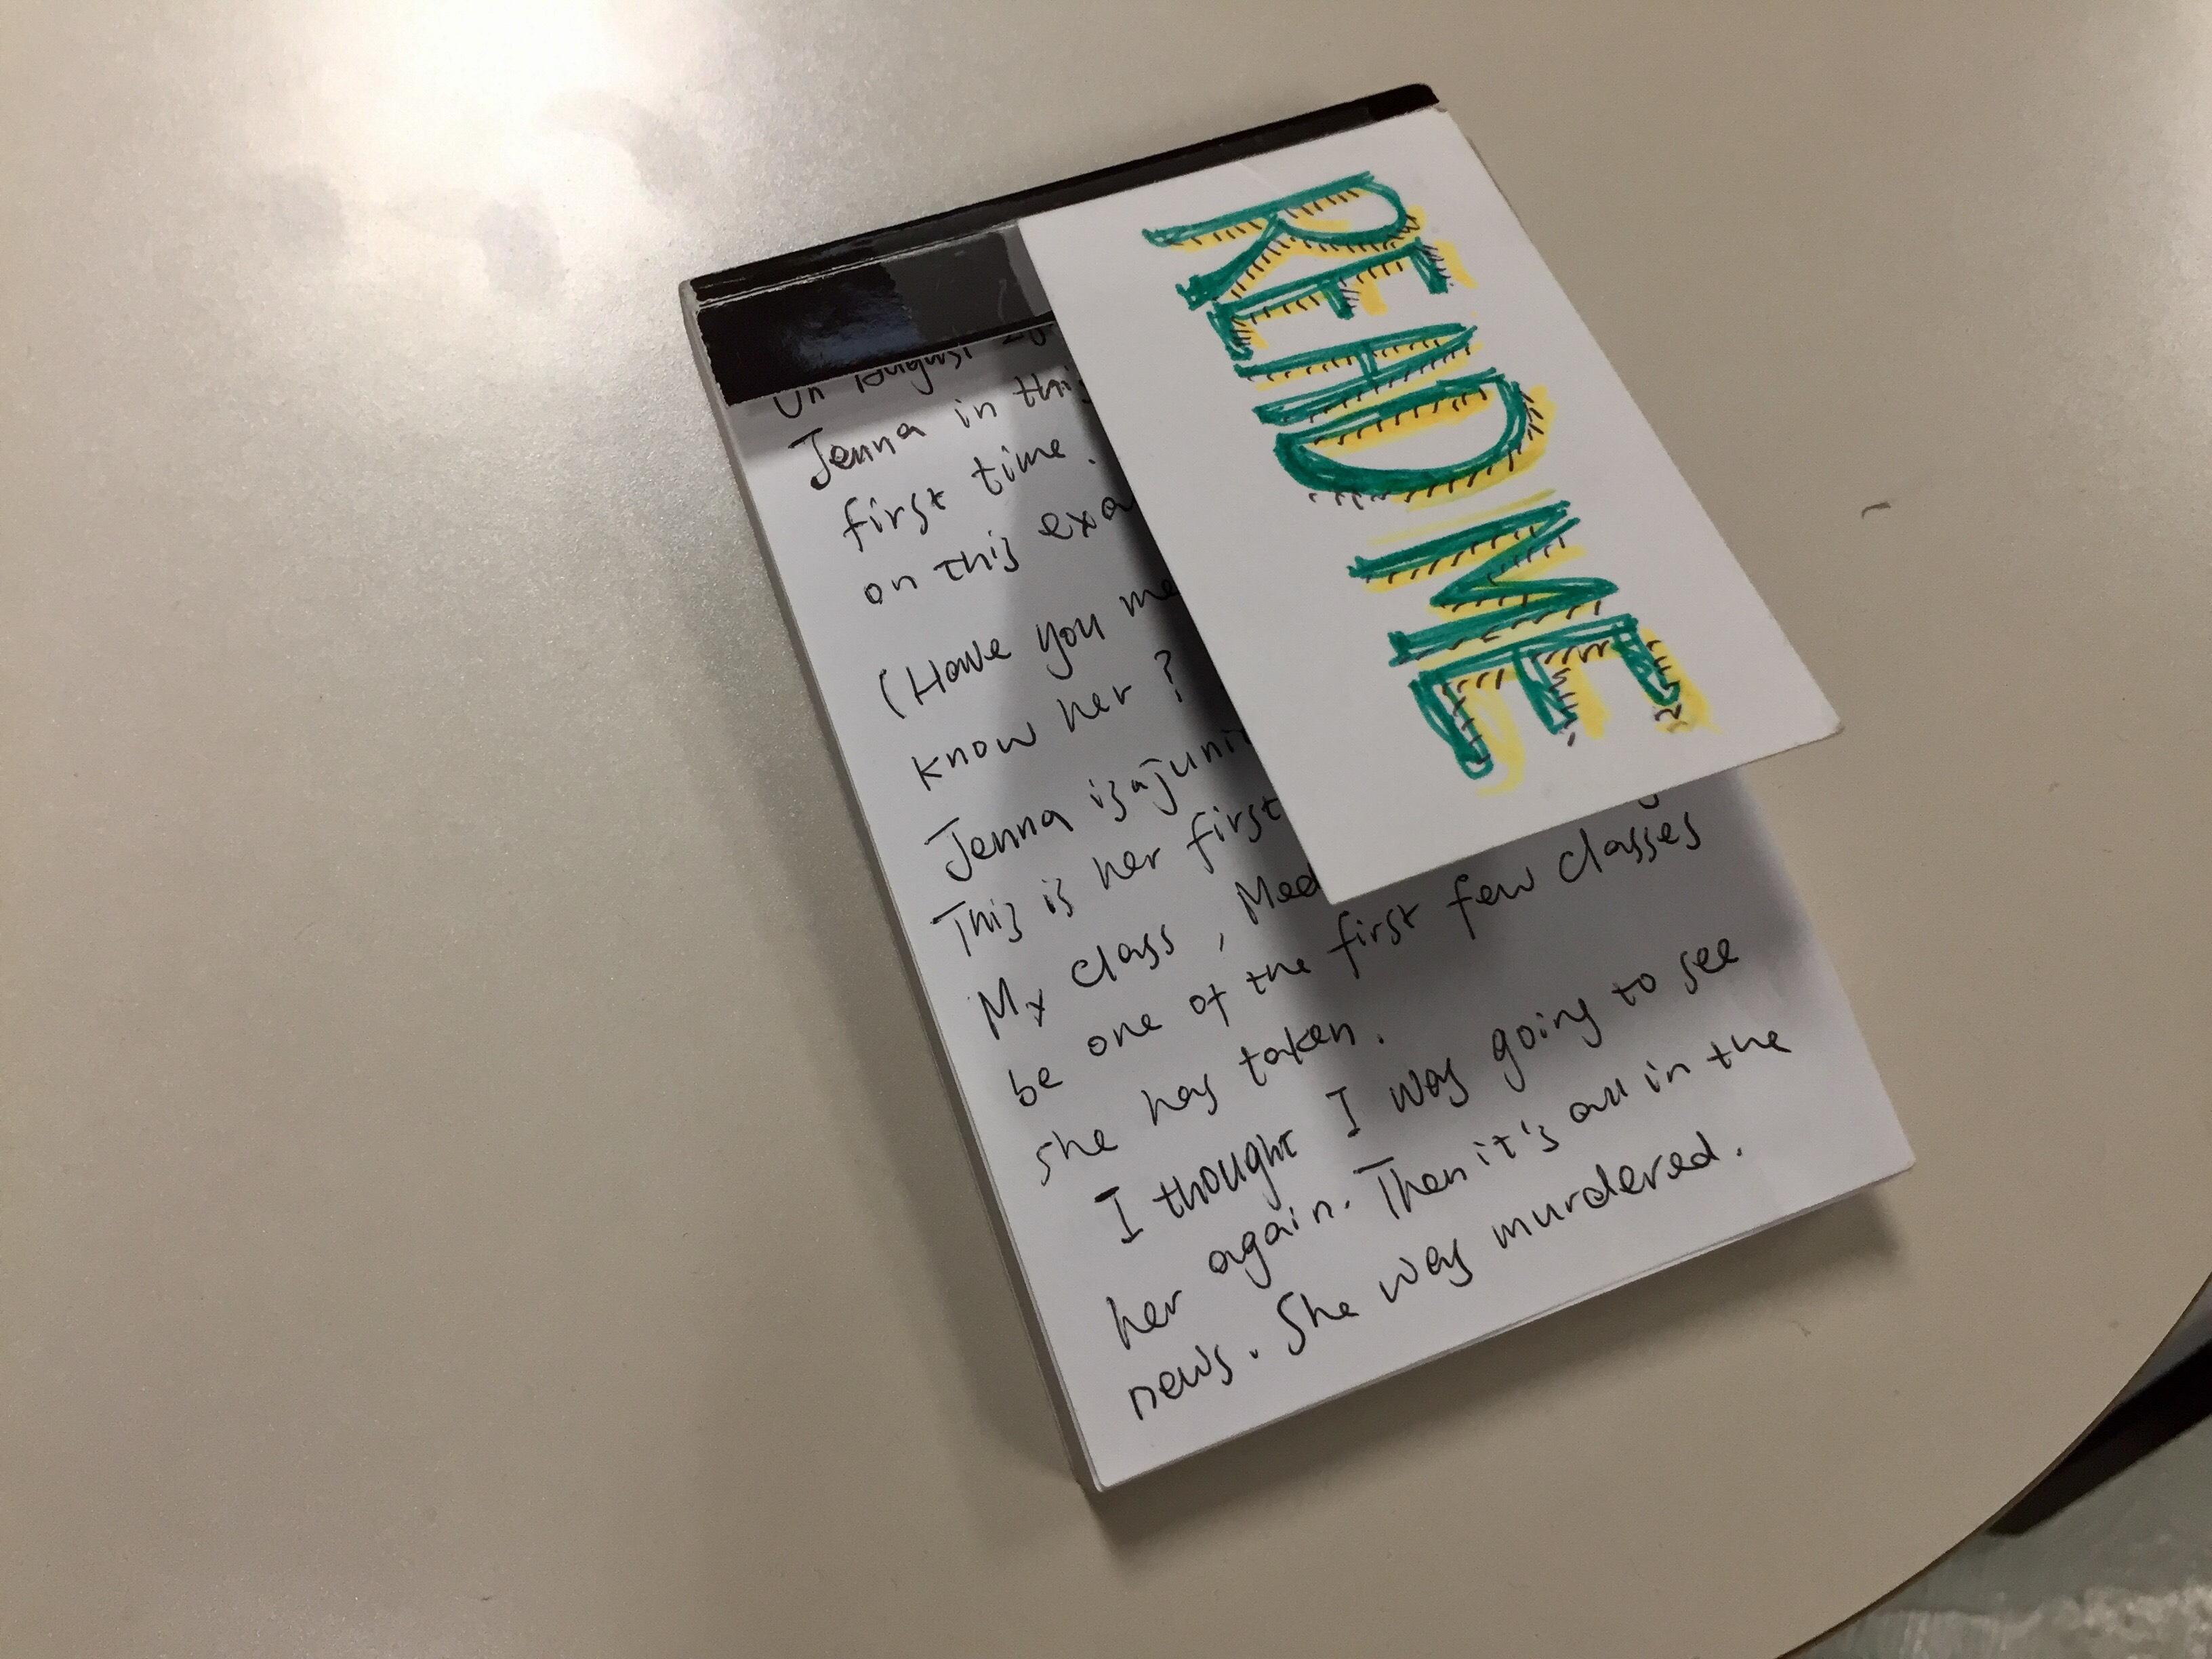 READ ME
On August
Jenna in this
first time.
on this
(Have you
know her?
Jenna is a
This is her first
My class,
be one of the first few classes
she has taken.
I thought I was going to see
her again. Then it's all in the
news. She was murdered.